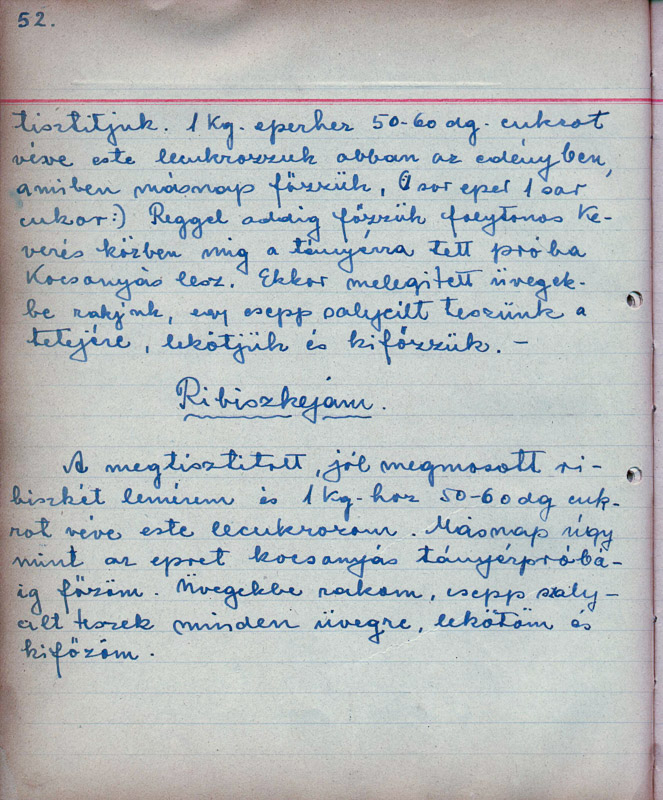 52.
tisztitjuk. 1 Kg. eperhez 50-60 dg. cukrot
véve este lecukrozzuk abban az edényben,
amiben másnap főzzük, (1 sor eper 1 sor
cukor:) Reggel addig főzzük folytonos Ke-
verés közben mig a tányérra tett próba
Kocsonyás lesz. Ekkor melegitett üvegek-
be rakjuk, egy csepp salycilt teszünk a
tetejére, lekötjük és kifőzzük. -
Ribiszkejám.
A megtisztitott, jól megmosott ri-
biszkét lemérem és 1 Kg-hoz 50-60 dg cuk-
rot véve este lecukrozom. Másnap úgy
mint az epret kocsonyás tányérpróbá-
ig főzöm. Üvegekbe rakom, csepp szaly-
cilt teszek minden üvegre, lekötöm és
kifőzöm.